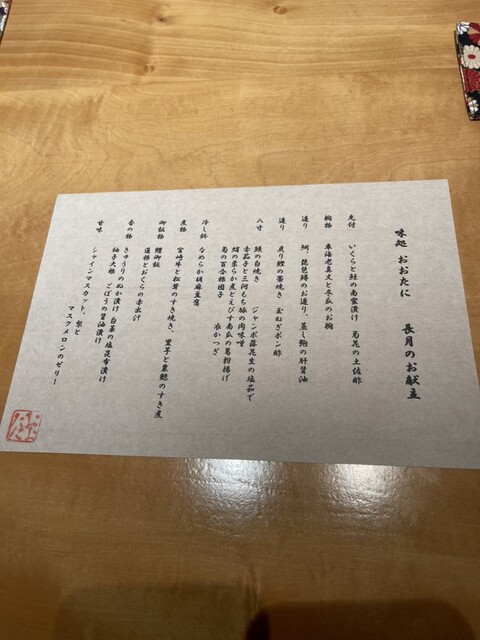 味処 おおたに 長月のお献立
先付 いくらと鮭の南蛮漬け 菊花の土佐酢
椀物 車海老真丈と冬瓜のお椀
造り 鯛、琵琶鱒のお造り、蒸し鮑の肝醤油
造り 炙り鰹の藁焼き 玉ねぎポン酢
八寸 鰻の白焼き ジャンボ落花生の塩茹で
赤茄子と三河もち豚の肉味噌
蛸の柔らか煮とえびす南瓜の葛粉揚げ
菊の百合根団子 衣かつぎ
冷し鉢 なめらか胡麻豆腐
煮物 宮崎牛と松茸のすき焼き、里芋と果鶏のすき煮
御飯物 鱧御飯
蓮根とおくらの赤出汁
香の物 きゅうりのぬか漬け 白菜の塩昆布漬け
柚子大根 ごぼうの醤油漬け
甘味 シャインマスカット、梨と
マスクメロンのゼリー